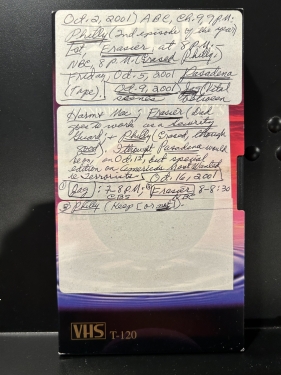 Oct. 2, 2001) ABC, Ch. 9, 9 P.M.
Philly (2nd episode of the year)
Frasier, at 8 P.M.
NBC, 8 P.M. (Erased Philly)
Friday, Oct. 5, 2001 Pasadena
(Tape). Oct. 9, 2001) Jag
between
Frasier (
to work as a Security
Guard) + Philly (Erased, though
good). I thought Pasadena would
on Oct. 12, but special
edition on America's Most Wanted
Terrorists. Oct. 16, 2001
① Jag: 7-8 P.M. ② Frasier 8-8:30
CBS
③ Philly (Keep [or not]).
VHS T-120